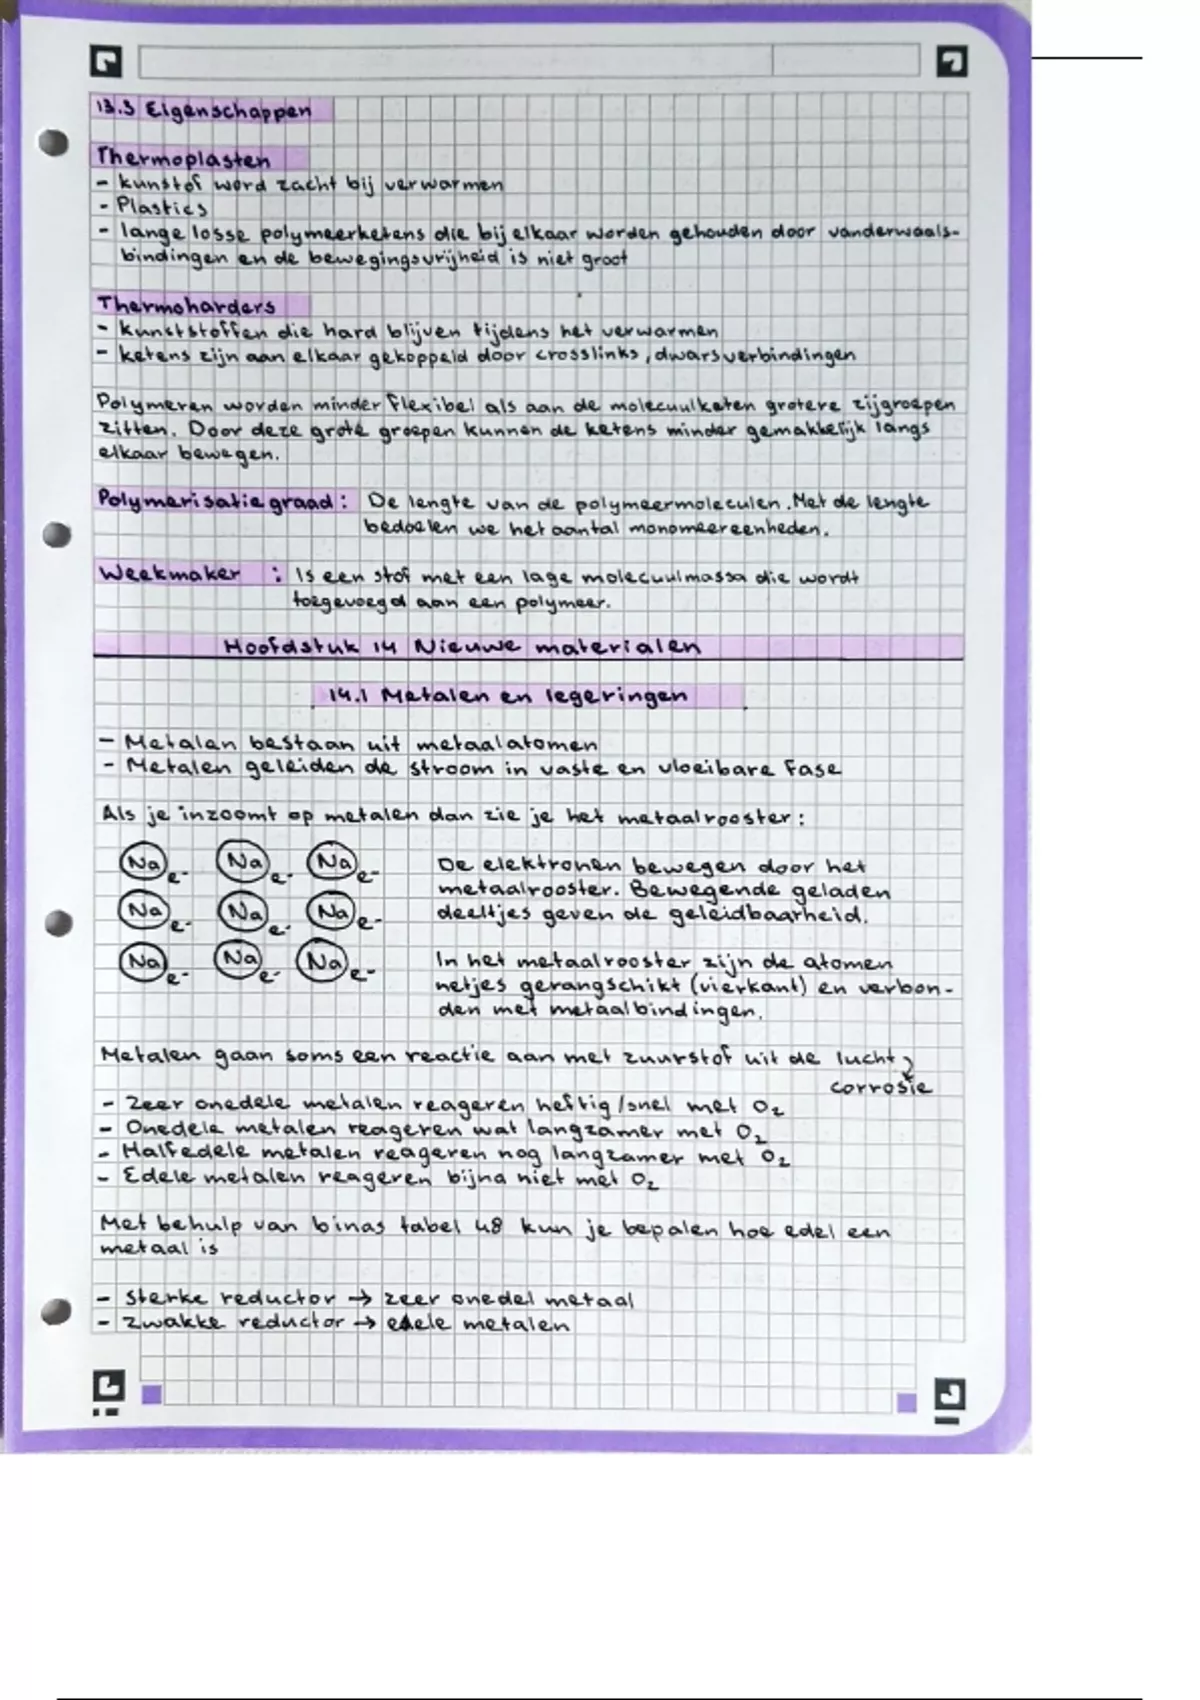 13.3 Eigenschappen
Thermoplasten
- kunstof word zacht bij verwarmen
- Plastics
- lange losse polymeerketens die bij elkaar worden gehouden door vanderwaals-
bindingen en de bewegingsvrijheid is niet groot
Thermoharders
- kunststoffen die hard blijven tijdens het verwarmen
- ketens zijn aan elkaar gekoppeld door crosslinks, dwarsverbindingen
Polymeren worden minder flexibel als aan de molecuulketen grotere zijgroepen
zitten. Door deze grote groepen kunnen de ketens minder gemakkelijk langs
elkaar bewegen.
Polymerisatiegraad: De lengte van de polymeermoleculen. Met de lengte
bedoelen we het aantal monomeereenheden.
Weekmaker : Is een stof met een lage molecuulmassa die wordt
toegevoegd aan een polymeer.
Hoofdstuk 14 Nieuwe materialen
14.1 Metalen en legeringen
- Metalen bestaan uit metaalatomen
- Metalen geleiden de stroom in vaste en vloeibare fase
Als je inzoomt op metalen dan zie je het metaalrooster:
Na e- Na e- Na e-
Na e- Na e- Na e-
Na e- Na e- Na e-
De elektronen bewegen door het
metaalrooster. Bewegende geladen
deeltjes geven de geleidbaarheid.
In het metaalrooster zijn de atomen
netjes gerangschikt (vierkant) en verbon-
den met metaalbindingen.
Metalen gaan soms een reactie aan met zuurstof uit de lucht
corrosie
- Zeer onedele metalen reageren heftig/snel met O2
- Onedele metalen reageren wat langzamer met O2
- Halfedele metalen reageren nog langzamer met O2
- Edele metalen reageren bijna niet met O2
Met behulp van binas tabel 48 kun je bepalen hoe edel een
metaal is
- sterke reductor → zeer onedel metaal
- zwakke reductor → edele metalen